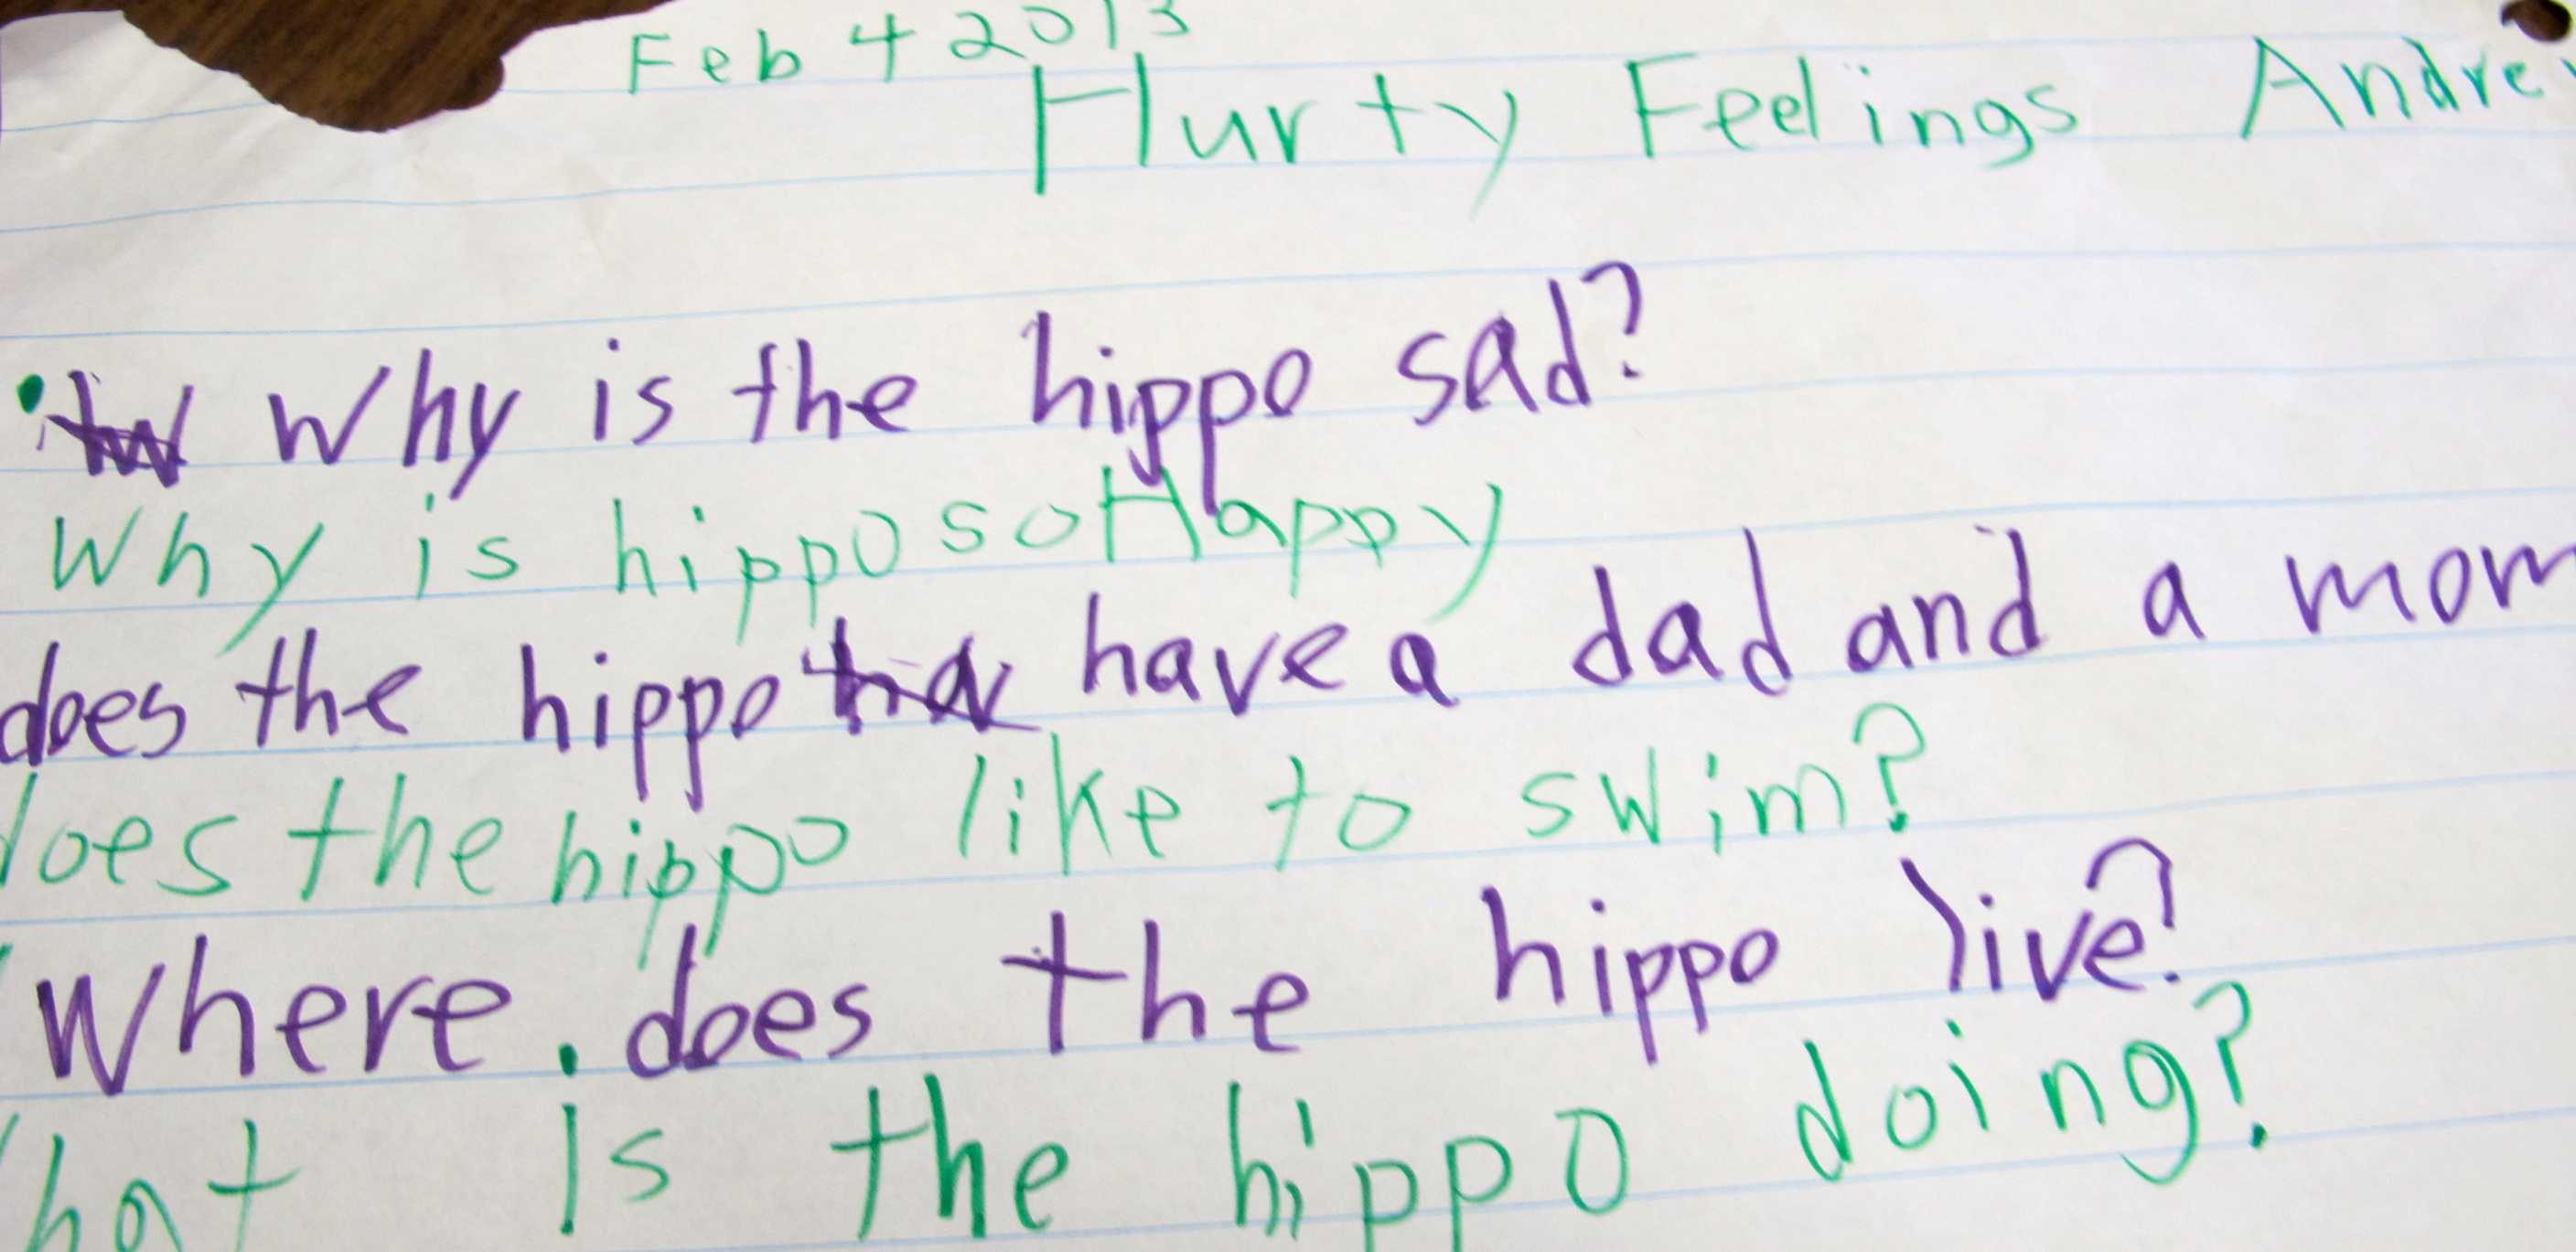 Feb 4 2013
Hurty Feelings Andre
Why is the hippo sad?
Why is hippo so Happy
does the hippo have a dad and a mom
does the hippo like to swim?
Where does the hippo live?
hat is the hippo doing?